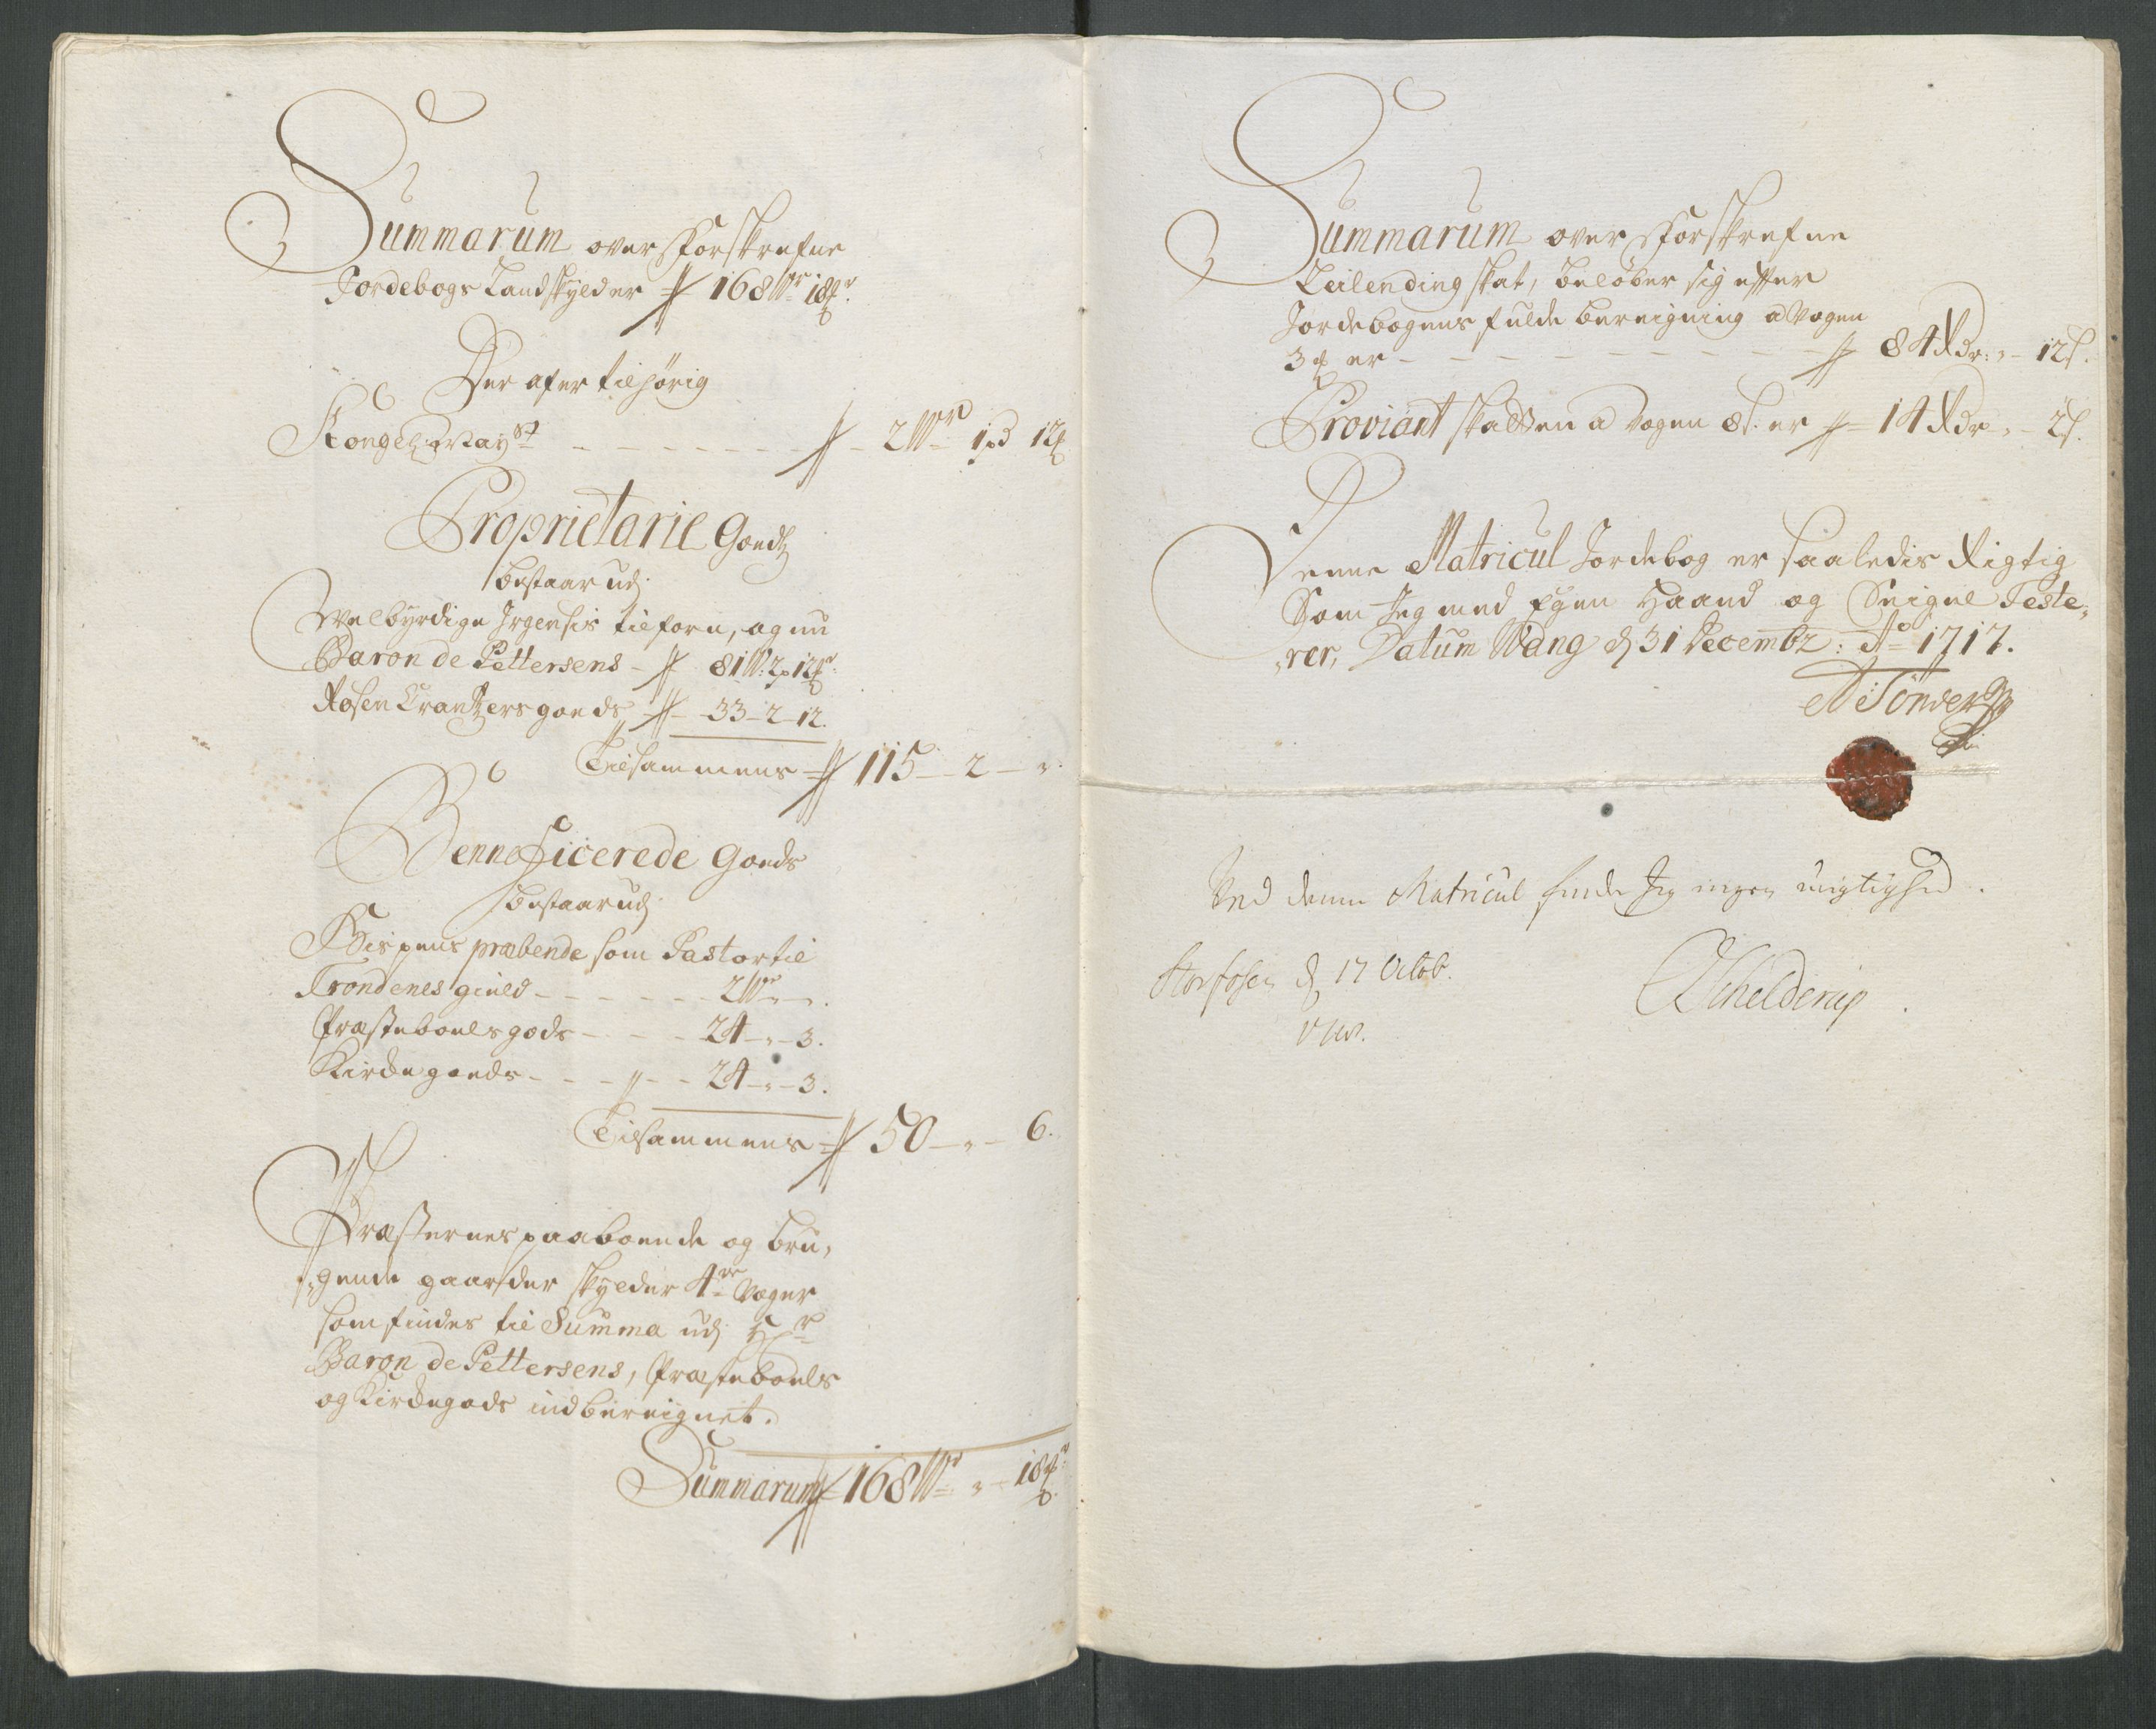 Summarum over Forskrefne
Jordebogs Landskylder 168 Wr 18 ℔r
Der af er tilhørig
Kongel: May.st - - - - - - 2 Wr 1 pd 12 ℔
Proprietarie Goedtz
bestaar udj
Welbÿrdige Jrgensis tilforn, og nu
Baron de Pettersens - 81 W: 2 p 12 ℔r
Rosen Crantzers goeds - 33 - 2 - 12.
Tilsammens 115 - 2 - „.
Benneficerede Goeds
bestaar udj
Bispens præbende som Pastor til
Trondenes gield - - - - - - 2 Wr „ - „.
Præsteboels gods - - - - 24 - „ - 3.
Kirche goeds - - - „ - - 24 - „ - 3.
Tilsammens 50 - „ - 6.
Præsternes paaboende og bru„
„gende gaarder skylder 4re Woger
som findes til Summa udj Hr
Baron de Pettersens, Præsteboels
og Kirchegods indbereignet.
Summarum 168 Wr „ - 18 ℔r
Summarum over Forskrefne
Leilending skat, beløber sig efter
Jordebogens fulde bereigning a Wogen
3 ℔ er - - - - - - - - 84 Rdr: „ - 12 s.
Proviant skatten a Wogen 8 s. er 14 Rdr - „ - 2 s.
Denne Matricul Jordebog er saaledis Rigtig
Som Jeg med Egen Haand og Seigne Teste„
„rer, Datum Wang d 31 Decembr: Ao 1717.
A Tönder
Ved denne Matricul finde Jeg ingen urigtighed.
Storfosen d 17 Octob.
Schelderup.